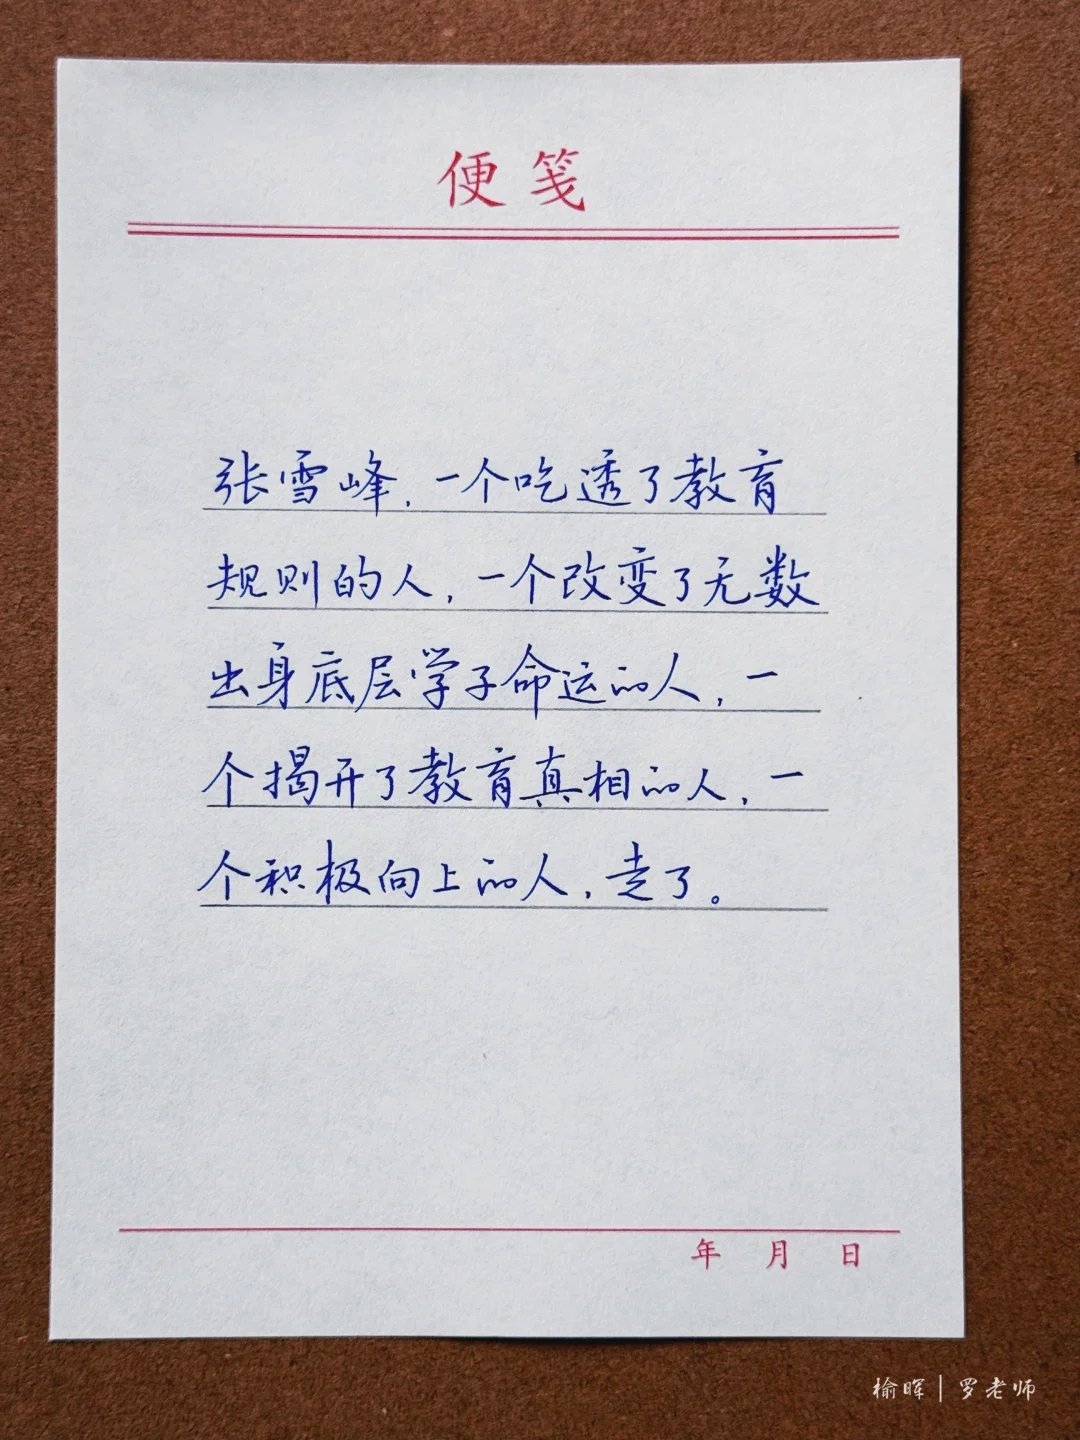 便笺
张雪峰，一个吃透了教育
规则的人，一个改变了无数
出身底层学子命运的人，一
个揭开了教育真相的人，一
个积极向上的人，走了。
年 月 日
榆晖|罗老师